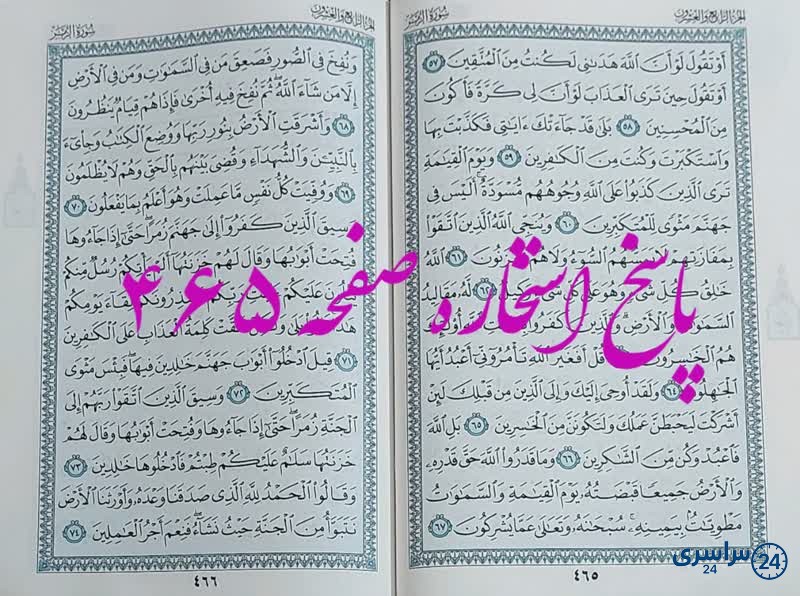 الجزء الرابع والعشرون
سورة الزمر
أَوْ تَقُولَ لَوْ أَنَّ اللَّهَ هَدَىٰنِى لَكُنتُ مِنَ الْمُتَّقِينَ ٥٧
أَوْ تَقُولَ حِينَ تَرَى الْعَذَابَ لَوْ أَنَّ لِى كَرَّةً فَأَكُونَ
مِنَ الْمُحْسِنِينَ ٥٨ بَلَىٰ قَدْ جَاءَتْكَ ءَايَٰتِى فَكَذَّبْتَ بِهَا
وَاسْتَكْبَرْتَ وَكُنتَ مِنَ الْكَٰفِرِينَ ٥٩ وَيَوْمَ الْقِيَٰمَةِ
تَرَى الَّذِينَ كَذَبُوا عَلَى اللَّهِ وُجُوهُهُم مُّسْوَدَّةٌ أَلَيْسَ فِى
جَهَنَّمَ مَثْوًى لِّلْمُتَكَبِّرِينَ ٦٠ وَيُنَجِّى اللَّهُ الَّذِينَ اتَّقَوْا
بِمَفَازَتِهِمْ لَا يَمَسُّهُمُ السُّوءُ وَلَا هُمْ يَحْزَنُونَ ٦١ اللَّهُ
خَٰلِقُ كُلِّ شَىْءٍ وَهُوَ عَلَىٰ كُلِّ شَىْءٍ وَكِيلٌ ٦٢ لَّهُ مَقَالِيدُ
السَّمَٰوَٰتِ وَالْأَرْضِ وَالَّذِينَ كَفَرُوا
هُمُ الْخَٰسِرُونَ قُلْ أَفَغَيْرَ اللَّهِ تَأْمُرُونِّى أَعْبُدُ أَيُّهَا
الْجَٰهِلُونَ ٦٤ وَلَقَدْ أُوحِىَ إِلَيْكَ وَإِلَى الَّذِينَ مِن قَبْلِكَ لَئِنْ
أَشْرَكْتَ لَيَحْبَطَنَّ عَمَلُكَ وَلَتَكُونَنَّ مِنَ الْخَٰسِرِينَ ٦٥ بَلِ اللَّهَ
فَاعْبُدْ وَكُن مِّنَ الشَّٰكِرِينَ ٦٦ وَمَا قَدَرُوا اللَّهَ حَقَّ قَدْرِهِ
وَالْأَرْضُ جَمِيعًا قَبْضَتُهُ يَوْمَ الْقِيَٰمَةِ وَالسَّمَٰوَٰتُ
مَطْوِيَّٰتٌ بِيَمِينِهِ سُبْحَٰنَهُ وَتَعَٰلَىٰ عَمَّا يُشْرِكُونَ ٦٧
٤٦٥
الجزء الرابع والعشرون
سورة الزمر
وَنُفِخَ فِى الصُّورِ فَصَعِقَ مَن فِى السَّمَٰوَٰتِ وَمَن فِى الْأَرْضِ
إِلَّا مَن شَاءَ اللَّهُ ثُمَّ نُفِخَ فِيهِ أُخْرَىٰ فَإِذَا هُمْ قِيَامٌ يَنظُرُونَ
٦٨ وَأَشْرَقَتِ الْأَرْضُ بِنُورِ رَبِّهَا وَوُضِعَ الْكِتَٰبُ وَجِا۟ىءَ
بِالنَّبِيِّۦنَ وَالشُّهَدَاءِ وَقُضِىَ بَيْنَهُم بِالْحَقِّ وَهُمْ لَا يُظْلَمُونَ
٦٩ وَوُفِّيَتْ كُلُّ نَفْسٍ مَّا عَمِلَتْ وَهُوَ أَعْلَمُ بِمَا يَفْعَلُونَ ٧٠
وَسِيقَ الَّذِينَ كَفَرُوا إِلَىٰ جَهَنَّمَ زُمَرًا حَتَّىٰ إِذَا جَاءُوهَا
فُتِحَتْ أَبْوَٰبُهَا وَقَالَ لَهُمْ خَزَنَتُهَا أَلَمْ يَأْتِكُمْ رُسُلٌ مِّنكُمْ
عَلَيْكُمْ لِقَاءَ يَوْمِكُمْ
كَلِمَةُ الْعَذَابِ عَلَى الْكَٰفِرِينَ
٧١ قِيلَ ادْخُلُوا أَبْوَٰبَ جَهَنَّمَ خَٰلِدِينَ فِيهَا فَبِئْسَ مَثْوَى
الْمُتَكَبِّرِينَ ٧٢ وَسِيقَ الَّذِينَ اتَّقَوْا رَبَّهُمْ إِلَى
الْجَنَّةِ زُمَرًا حَتَّىٰ إِذَا جَاءُوهَا وَفُتِحَتْ أَبْوَٰبُهَا وَقَالَ لَهُمْ
خَزَنَتُهَا سَلَٰمٌ عَلَيْكُمْ طِبْتُمْ فَادْخُلُوهَا خَٰلِدِينَ ٧٣
وَقَالُوا الْحَمْدُ لِلَّهِ الَّذِى صَدَقَنَا وَعْدَهُ وَأَوْرَثَنَا الْأَرْضَ
نَتَبَوَّأُ مِنَ الْجَنَّةِ حَيْثُ نَشَاءُ فَنِعْمَ أَجْرُ الْعَٰمِلِينَ ٧٤
٤٦٦
پاسخ استخاره صفحه ۴۶۵
سراسری 24
24